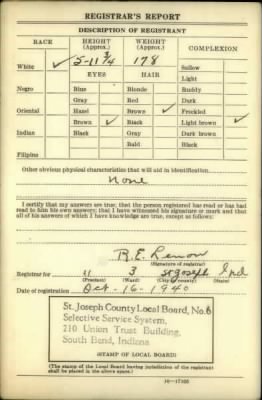 REGISTRAR'S REPORT
DESCRIPTION OF REGISTRANT
RACE HEIGHT (Approx.) WEIGHT (Approx.) COMPLEXION
White ✓ 5-11 3/4 178 Sallow
EYES HAIR Light
Negro Blue Blonde Ruddy
Gray Red Dark
Oriental Hazel Brown ✓ Freckled
Brown ✓ Black Light brown ✓
Indian Black Gray Dark brown
Bald Black
Filipino
Other obvious physical characteristics that will aid in identification
None
I certify that my answers are true; that the person registered has read or has had
read to him his own answers; that I have witnessed his signature or mark and that
all of his answers of which I have knowledge are true, except as follows:
R. E. Lemon
(Signature of registrar)
Registrar for 11 3 St Joseph Ind
(Precinct) (Ward) (City or county) (State)
Date of registration Oct-16-1940
St. Joseph County Local Board, No. 6
Selective Service System,
210 Union Trust Building,
South Bend, Indiana
(STAMP OF LOCAL BOARD)
(The stamp of the Local Board having jurisdiction of the registrant
shall be placed in the above space.)